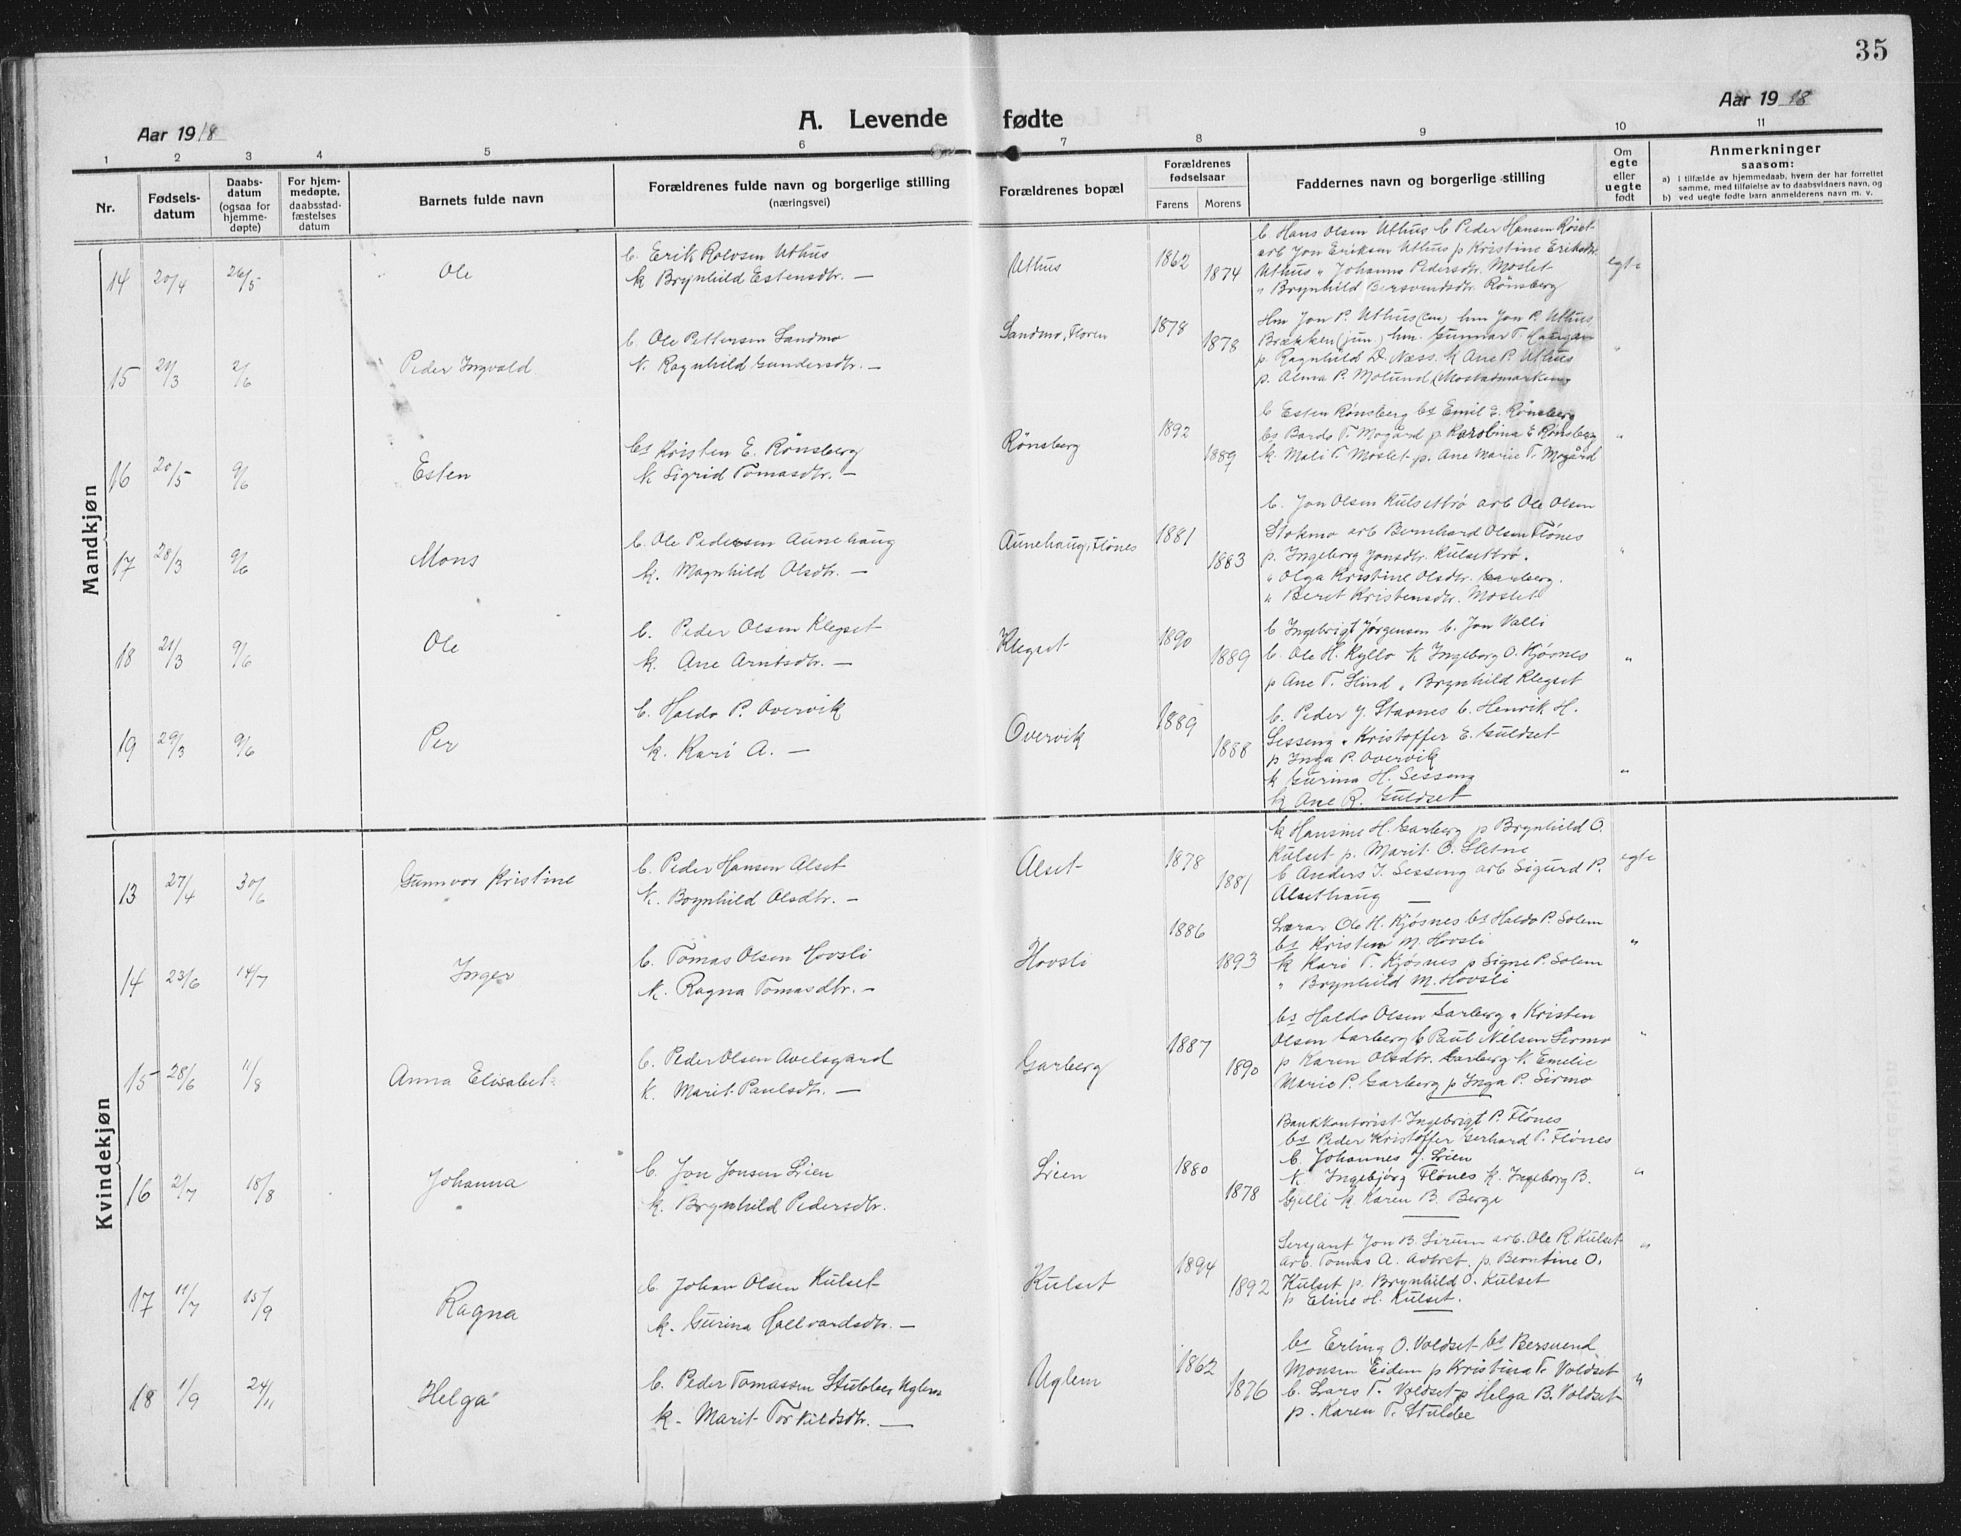 35
Aar 1918
A. Levende fødte
Aar 1918
1 2 3 4 5 6 7 8 9 10 11
Nr.
Fødsels-
datum
Daabs-
datum
(ogsaa for
hjemme-
døpte)
For hjem-
medøpte,
daabsstad-
fæstelses
datum
Barnets fulde navn
Forældrenes fulde navn og borgerlige stilling
(næringsvei)
Forældrenes bopæl
Forældrenes
fødselsaar
Farens Morens
Faddernes navn og borgerlige stilling
Om
egte
eller
uegte
født
Anmerkninger
saasom:
a) I tilfælde av hjemmedaab, hvem der har forrettet
samme, med tilføielse av to daabsvidners navn, og
b) ved uegte fødte barn anmelderens navn m. v.
Mandkjøn
14 20/4 26/5 Ole
b. Erik Rolvsen Uthus
k Brynhild Estensdtr. —
Uthus 1862 1874
b Hans Olsen Uthus b Peder Hansen Röset
arb Jon Eriksen Uthus p Kristine Eriksdtr.
Uthus " Johanna Pedersdtr. Moslet
" Brynhild Bersvendsdtr. Rönsberg
egte
15 21/3 2/6 Peder Ingvald
b. Ole Pettersen Sandmo
k. Ragnhild Gundersdtr. —
Sandmo, Floren 1878 1878
Hm Jon P. Uthus (sen) hm Jon P. Uthus
Brækken (jun) hm. Gunnar T. Haugan
p. Ragnhild D. Næss. k Ane P. Uthus
p. Alma P. Molund (Mostadmarken)
"
16 20/5 9/6 Esten
bs Kristen E. Rönsberg
k Sigrid Tomasdtr. —
Rönsberg 1892 1889
b Esten Rönsberg bs Emil E. Rönsberg
bs Bardo T. Mogård p Karolina E Rönsberg
k. Mali T. Moslet p. Ane Marie T. Mogård
"
17 28/3 9/6 Mons
b. Ole Pedersen Aunehaug
k. Magnhild Olsdtr. —
Aunehaug, Flönes 1881 1883
b. Jon Olsen Kulsettrø arb Ole Olsen
Stokmo arb Bernhard Olsen Flönes
p. Ingeborg Jonsdtr. Kulsettrø.
" Olga Kristine Olsdtr. Garberg.
" Beret Kristensdtr. Moslet
"
18 21/3 9/6 Ole
b. Peder Olsen Klegset
k. Ane Arntsdtr. —
Klegset 1890 1889
b Ingebrigt Jørgensen b. Jon Valli
b. Ole H. Kyllo k Ingeborg O. Kjøsnes
p Ane T. Slind " Brynhild Klegset
"
19 29/3 9/6 Per
b. Haldo P. Overvik
k. Kari A. —
Overvik 1889 1888
b. Peder J. Stavnes b. Henrik H.
Sesseng " Kristoffer E. Guldset
p Inga P. Overvik
k Gurina H. Sesseng
k Ane R. Guldset
"
Kvindekjøn
13 27/4 30/6 Gunnvor Kristine
b. Peder Hansen Alset
k. Brynhild Olsdtr. —
Alset 1878 1881
k Hansine H. Garberg p Brynhild O.
Kulset p. Marit O. Sletne
b Anders J. Sesseng arb Sigurd P.
Alsethaug —
egte
14 23/6 14/7 Inger
b. Tomas Olsen Hovsli
k. Ragna Tomasdtr. —
Hovsli 1886 1893
Lærar Ole H. Kjøsnes bs Haldo P. Solem
bs Kristen M. Hovsli
k Kari T. Kjøsnes p Signe P. Solem
" Brynhild M. Hovsli
"
15 28/6 11/8 Anna Elisabet
b. Peder Olsen Avelsgard
k. Marit Paulsdtr. —
Garberg 1887 1890
bs Haldo Olsen Garberg " Kristen
Olsen Garberg b Paul Nilsen Sirmo
p Karen Olsdtr. Garberg k. Emelie
Marie P. Garberg p Inga P. Sirmo
"
16 2/7 18/8 Johanna
b. Jon Jonsen Lien
k. Brynhild Pedersdtr.
Lien 1880 1878
Bankkontorist Ingebrigt P. Flönes
bs Peder Kristoffer Gerhard P. Flönes
b. Johannes J. Lien
k. Ingebjörg Flönes k. Ingeborg B.
Gjelli k Karen B. Berge
"
17 11/7 15/9 Ragna
b. Johan Olsen Kulset
k. Gurina Hallvardsdtr. —
Kulset 1894 1892
Sersjant Jon B. Lirum arb. Ole R. Kulset
arb. Tomas A. Autret. p. Berntine O.
Kulset p. Brynhild O. Kulset
p Eline H. Kulset.
"
18 1/9 24/11 Helga
b. Peder Tomassen Stubbe Uglem
k. Marit Torkildsdtr. —
Uglem 1862 1876
bs Erling O. Voldset bs Bersvend
Monsen Eidem p Kristina T. Voldset
b. Lars T. Voldset p Helga B. Voldset
p. Karen T. Stubbe
"